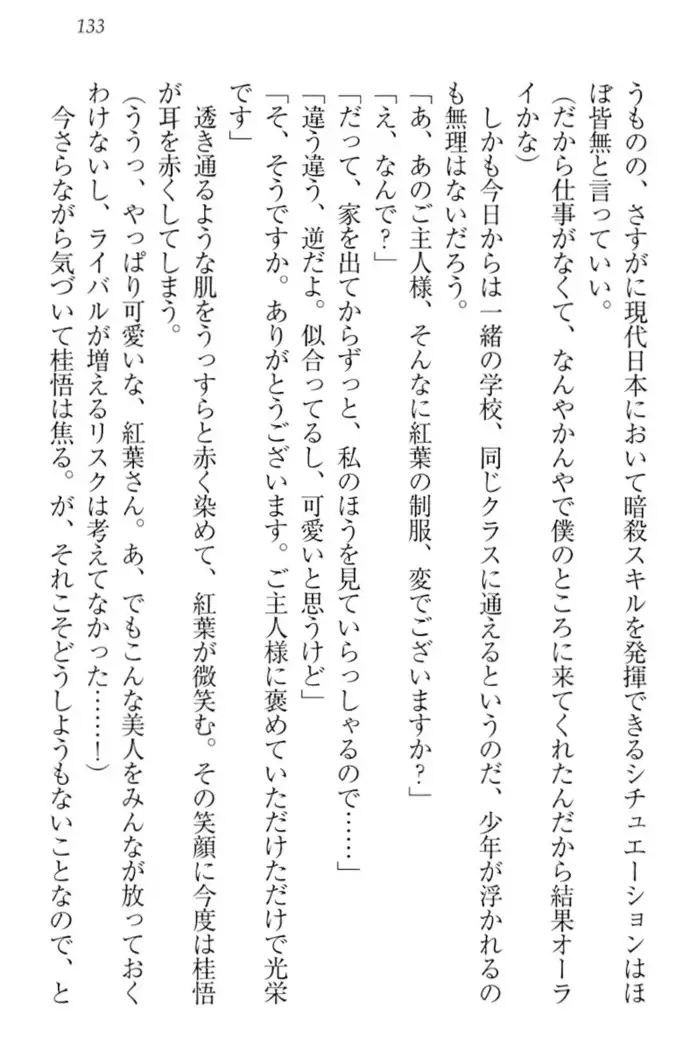 133
うものの、さすがに現代日本において暗殺スキルを発揮できるシチュエーションはほ
ぼ皆無と言っていい。
(だから仕事がなくて、なんやかんやで僕のところに来てくれたんだから結果オーラ
イかな)
しかも今日からは一緒の学校、同じクラスに通えるというのだ、少年が浮かれるの
も無理はないだろう。
「あ、あのご主人様、そんなに紅葉の制服、変でございますか?」
「え、なんで?」
「だって、家を出てからずっと、私のほうを見ていらっしゃるので……」
「違う違う、逆だよ。似合ってるし、可愛いと思うけど」
「そ、そうですか。ありがとうございます。ご主人様に褒めていただけただけで光栄
です」
透き通るような肌をうっすらと赤く染めて、紅葉が微笑む。その笑顔に今度は桂悟
が耳を赤くしてしまう。
(ううっ、やっぱり可愛いな、紅葉さん。あ、でもこんな美人をみんなが放っておく
わけないし、ライバルが増えるリスクは考えてなかった……!)
今さらながら気づいて桂悟は焦る。が、それこそどうしようもないことなので、と